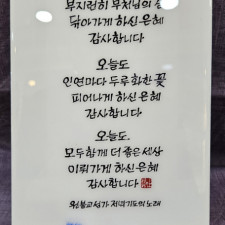 부지런히 부처님의
닦아가게 하신 은혜
감사합니다
오늘도
인연마다 두루 화한 꽃
피어나게 하신 은혜
감사합니다
오늘도
모두함께 더 좋은 세상
이뤄가게 하신 은혜
감사합니다
원불교성가 저녁기도의 노래